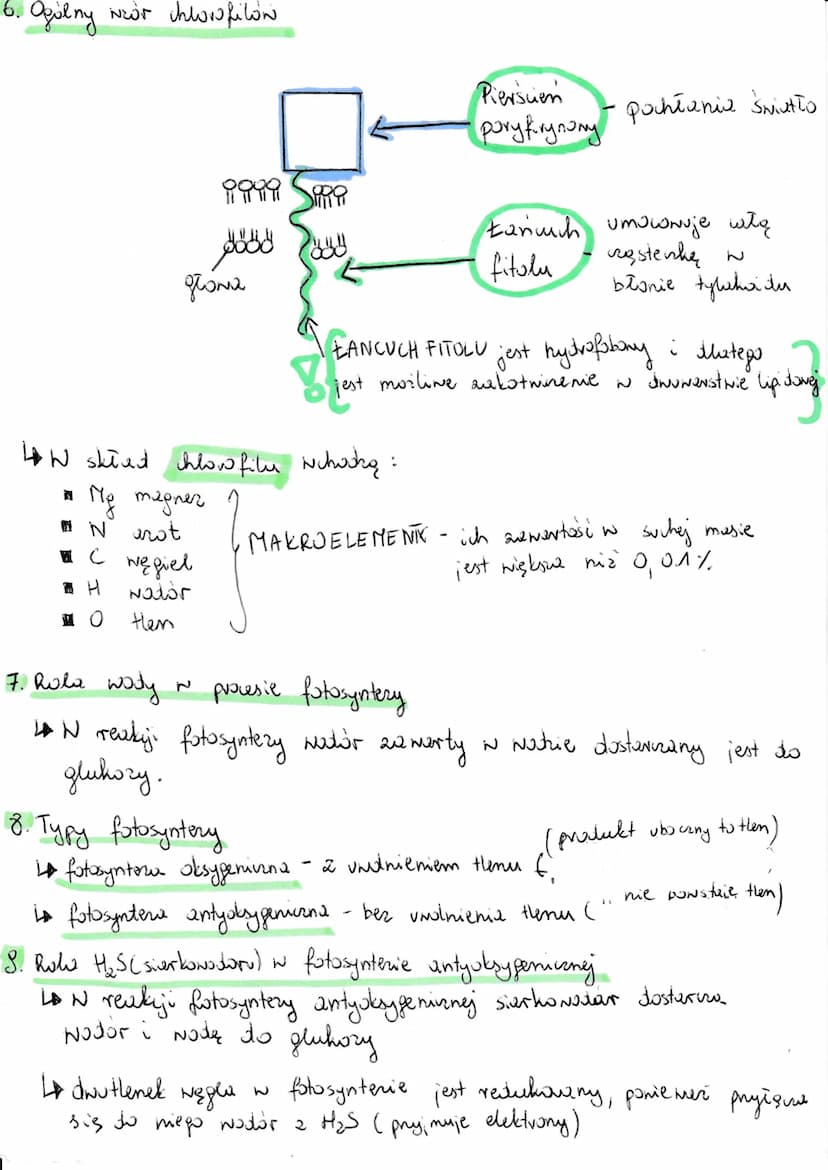 6. Ogólny wzór chlorofilów
Pierścień
poryfirynowy
- pochłania światło
Łańcuch
fitolu
- umocowuje całą
cząsteczkę w
błonie tylakoidu
głowa
ŁAŃCUCH FITOLU jest hydrofobowy i dlatego
jest możliwe zakotwiczenie w dwuwarstwie lipidowej
↳ W skład chlorofilu wchodzą:
▪ Mg magnez
▪ N azot
▪ C węgiel
▪ H wodór
▪ O tlen
MAKROELEMENTY - ich zawartość w suchej masie
jest większa niż 0,01%
7. Rola wody w procesie fotosyntezy
↳ W reakcji fotosyntezy wodór zawarty w wodzie dostarczany jest do
glukozy.
8. Typy fotosyntezy
↳ fotosynteza oksygeniczna - z uwolnieniem tlenu (produkt uboczny to tlen)
↳ fotosynteza antyoksygeniczna - bez uwolnienia tlenu (" nie powstaje tlen)
9. Rola H₂S (siarkowodoru) w fotosyntezie antyoksygenicznej
↳ W reakcji fotosyntezy antyoksygenicznej siarkowodór dostarcza
wodór i wodę do glukozy
↳ dwutlenek węgla w fotosyntezie jest redukowany, ponieważ przyłącza
się do niego wodór z H₂S (przyjmuje elektrony)